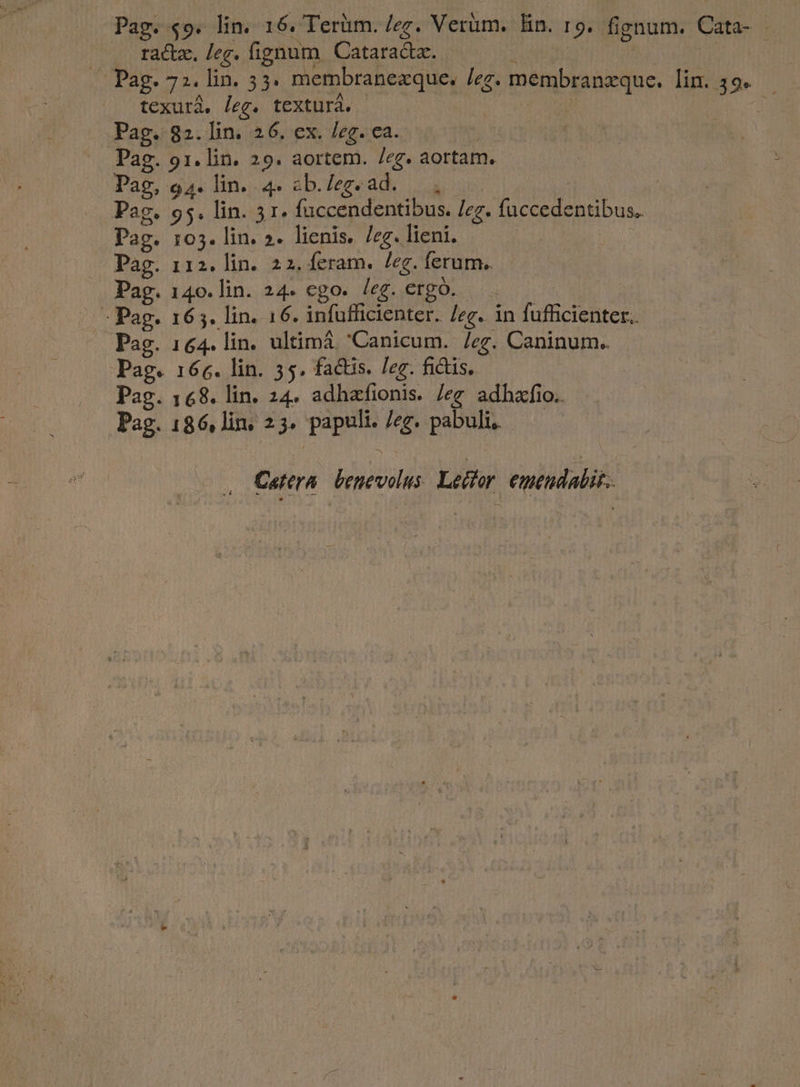 Pag. 59. lin. 16. Terùm. leg. Verùm. lin. 19. ſignum. Cata-
ractæ. leg. ſignum Cataractæ.
Pag. 72. lin. 33. membraneæque. leg. membranæque. lin. 39.
texurâ. leg. texturâ.
Pag. 82. lin. 26. ex. leg. ea.
Pag. 91. lin. 29. aortem. leg. aortam.
Pag. 94. lin. 4. ab. leg. ad.
Pag. 95. lin. 31. ſuccendentibus. leg. ſuccedentibus.
Pag. 103. lin. 2. lienis. leg. lieni.
Pag. 112. lin. 22. feram. leg. ferum.
Pag. 140. lin. 24. ego. leg. ergò.
Pag. 163. lin. 16. inſufficienter. leg. in ſufficienter.
Pag. 164. lin. ultimâ Canicum. leg. Caninum.
Pag. 166. lin. 35. factis. leg. fictis.
Pag. 168. lin. 24. adhæſionis. leg adhæſio.
Pag. 186, lin. 23. papuli. leg. pabuli.
Cætera benevolus Lector emendabit.